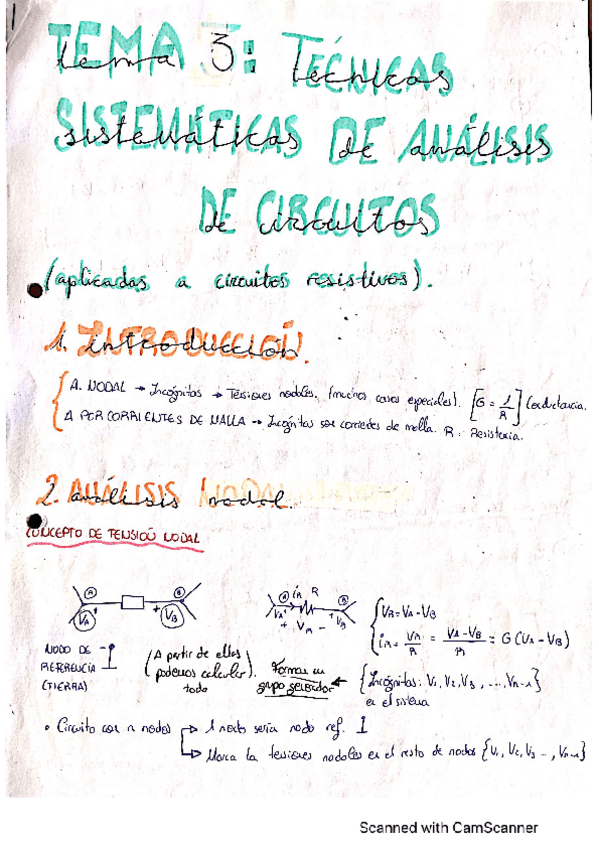 TEMA 3: TÉCNICAS
SISTEMÁTICAS DE ANÁLISIS
DE CIRCUITOS
(aplicadas a circuitos resistivos).
1. INTRODUCCIÓN.
A. NODAL → Incógnitas → Tensiones nodales. (muchos casos especiales). [G = 1/R] Conductancia.
A POR CORRIENTES DE MALLA → Incógnitas son corrientes de malla. R: Resistencia.
2. ANÁLISIS NODAL.
CONCEPTO DE TENSIÓN NODAL
A B
VA VB
+ +
A iR R B
VA + VR - VB
VR = VA - VB
iR = VR/R = VA - VB/R = G (VA - VB)
NODO DE REFERENCIA (TIERRA)
(A partir de ellos podemos calcular todo).
Forman un grupo generador ← {Incógnitas: V1, V2, V3, ..., Vn-1} en el sistema
• Circuito con n nodos → 1 nodo sería nodo ref.
→ Marca la tensiones nodales en el resto de nodos {V1, V2, V3 ..., Vn-1}
Scanned with CamScanner